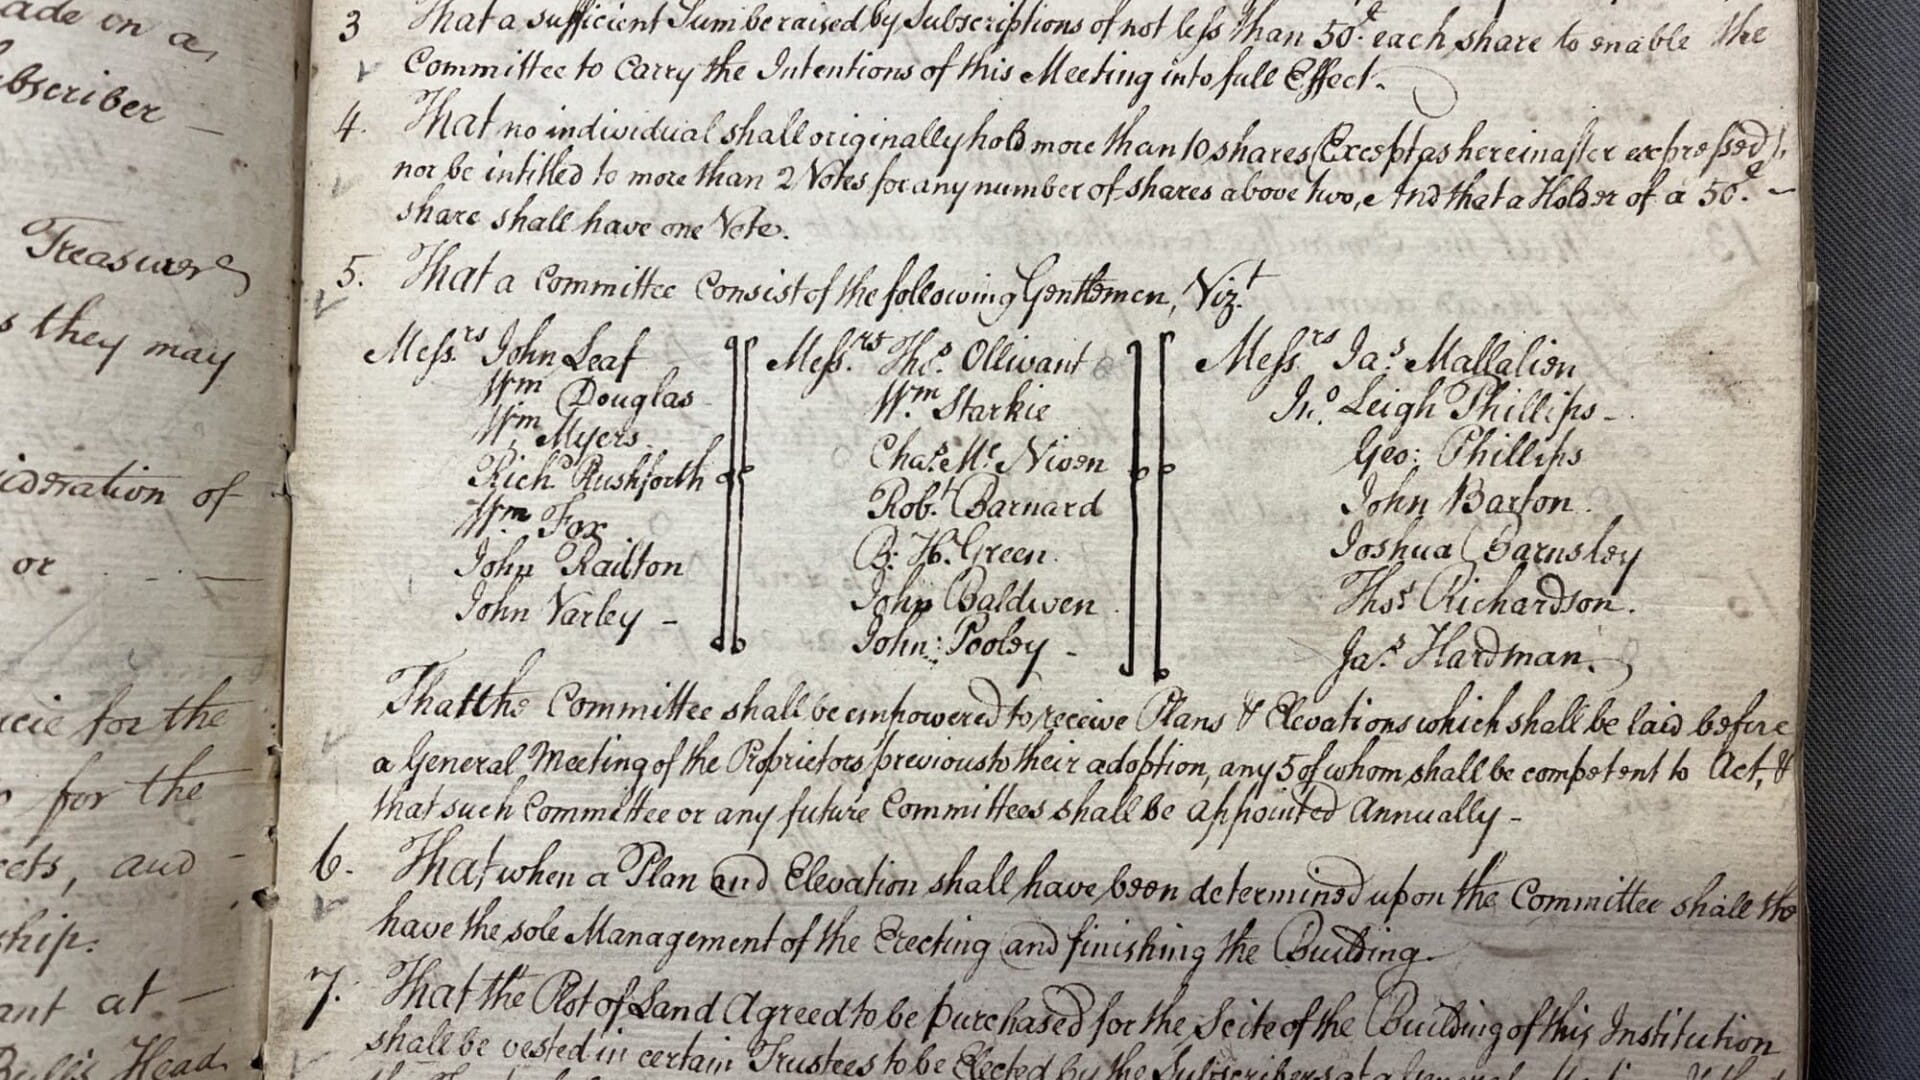 ade on a
ubscriber —
Treasurer
s they may
ideration of
or
for the
for the
and
ship.
ant at —
Bull's Head
3 That a sufficient Sum be raised by Subscriptions of not less than 50.£ each share to enable the
Committee to Carry the Intentions of this Meeting into full Effect.
4. That no individual shall originally hold more than 10 shares (Except as hereinafter expressed),
nor be intitled to more than 2 Votes for any number of shares above two, And that a Holder of a 50.£ –
share shall have one Vote.
5. That a Committee Consist of the following Gentlemen, Viz.t
Mess.rs John Leaf
Wm Douglas
Wm Myers
Rich.d Rushforth
Wm Fox
John Railton
John Varley –
Mess.rs Tho.s Ollivant
Wm Starkie
Cha.s Mc Niven
Rob.t Barnard
B. H. Green.
John Baldwen
John: Pooley –
Mess.rs Ja.s Mallalien
Jn.o Leigh Phillips –
Geo: Phillips
John Barton.
Joshua Barnsley
Thos Richardson.
Ja.s Hardman.
That the Committee shall be empowered to receive Plans & Elevations which shall be laid before
a General Meeting of the Proprietors previous to their adoption, any 5 of whom shall be competent to Act, &
that such Committee or any future Committees shall be Appointed Annually –
6. That when a Plan and Elevation shall have been determined upon the Committee shall the
have the sole Management of the Erecting and finishing the Building.
7. That the Plot of Land Agreed to be purchased for the Scite of the Building of this Institution
shall be vested in certain Trustees to be Elected by the Subscribers at a General